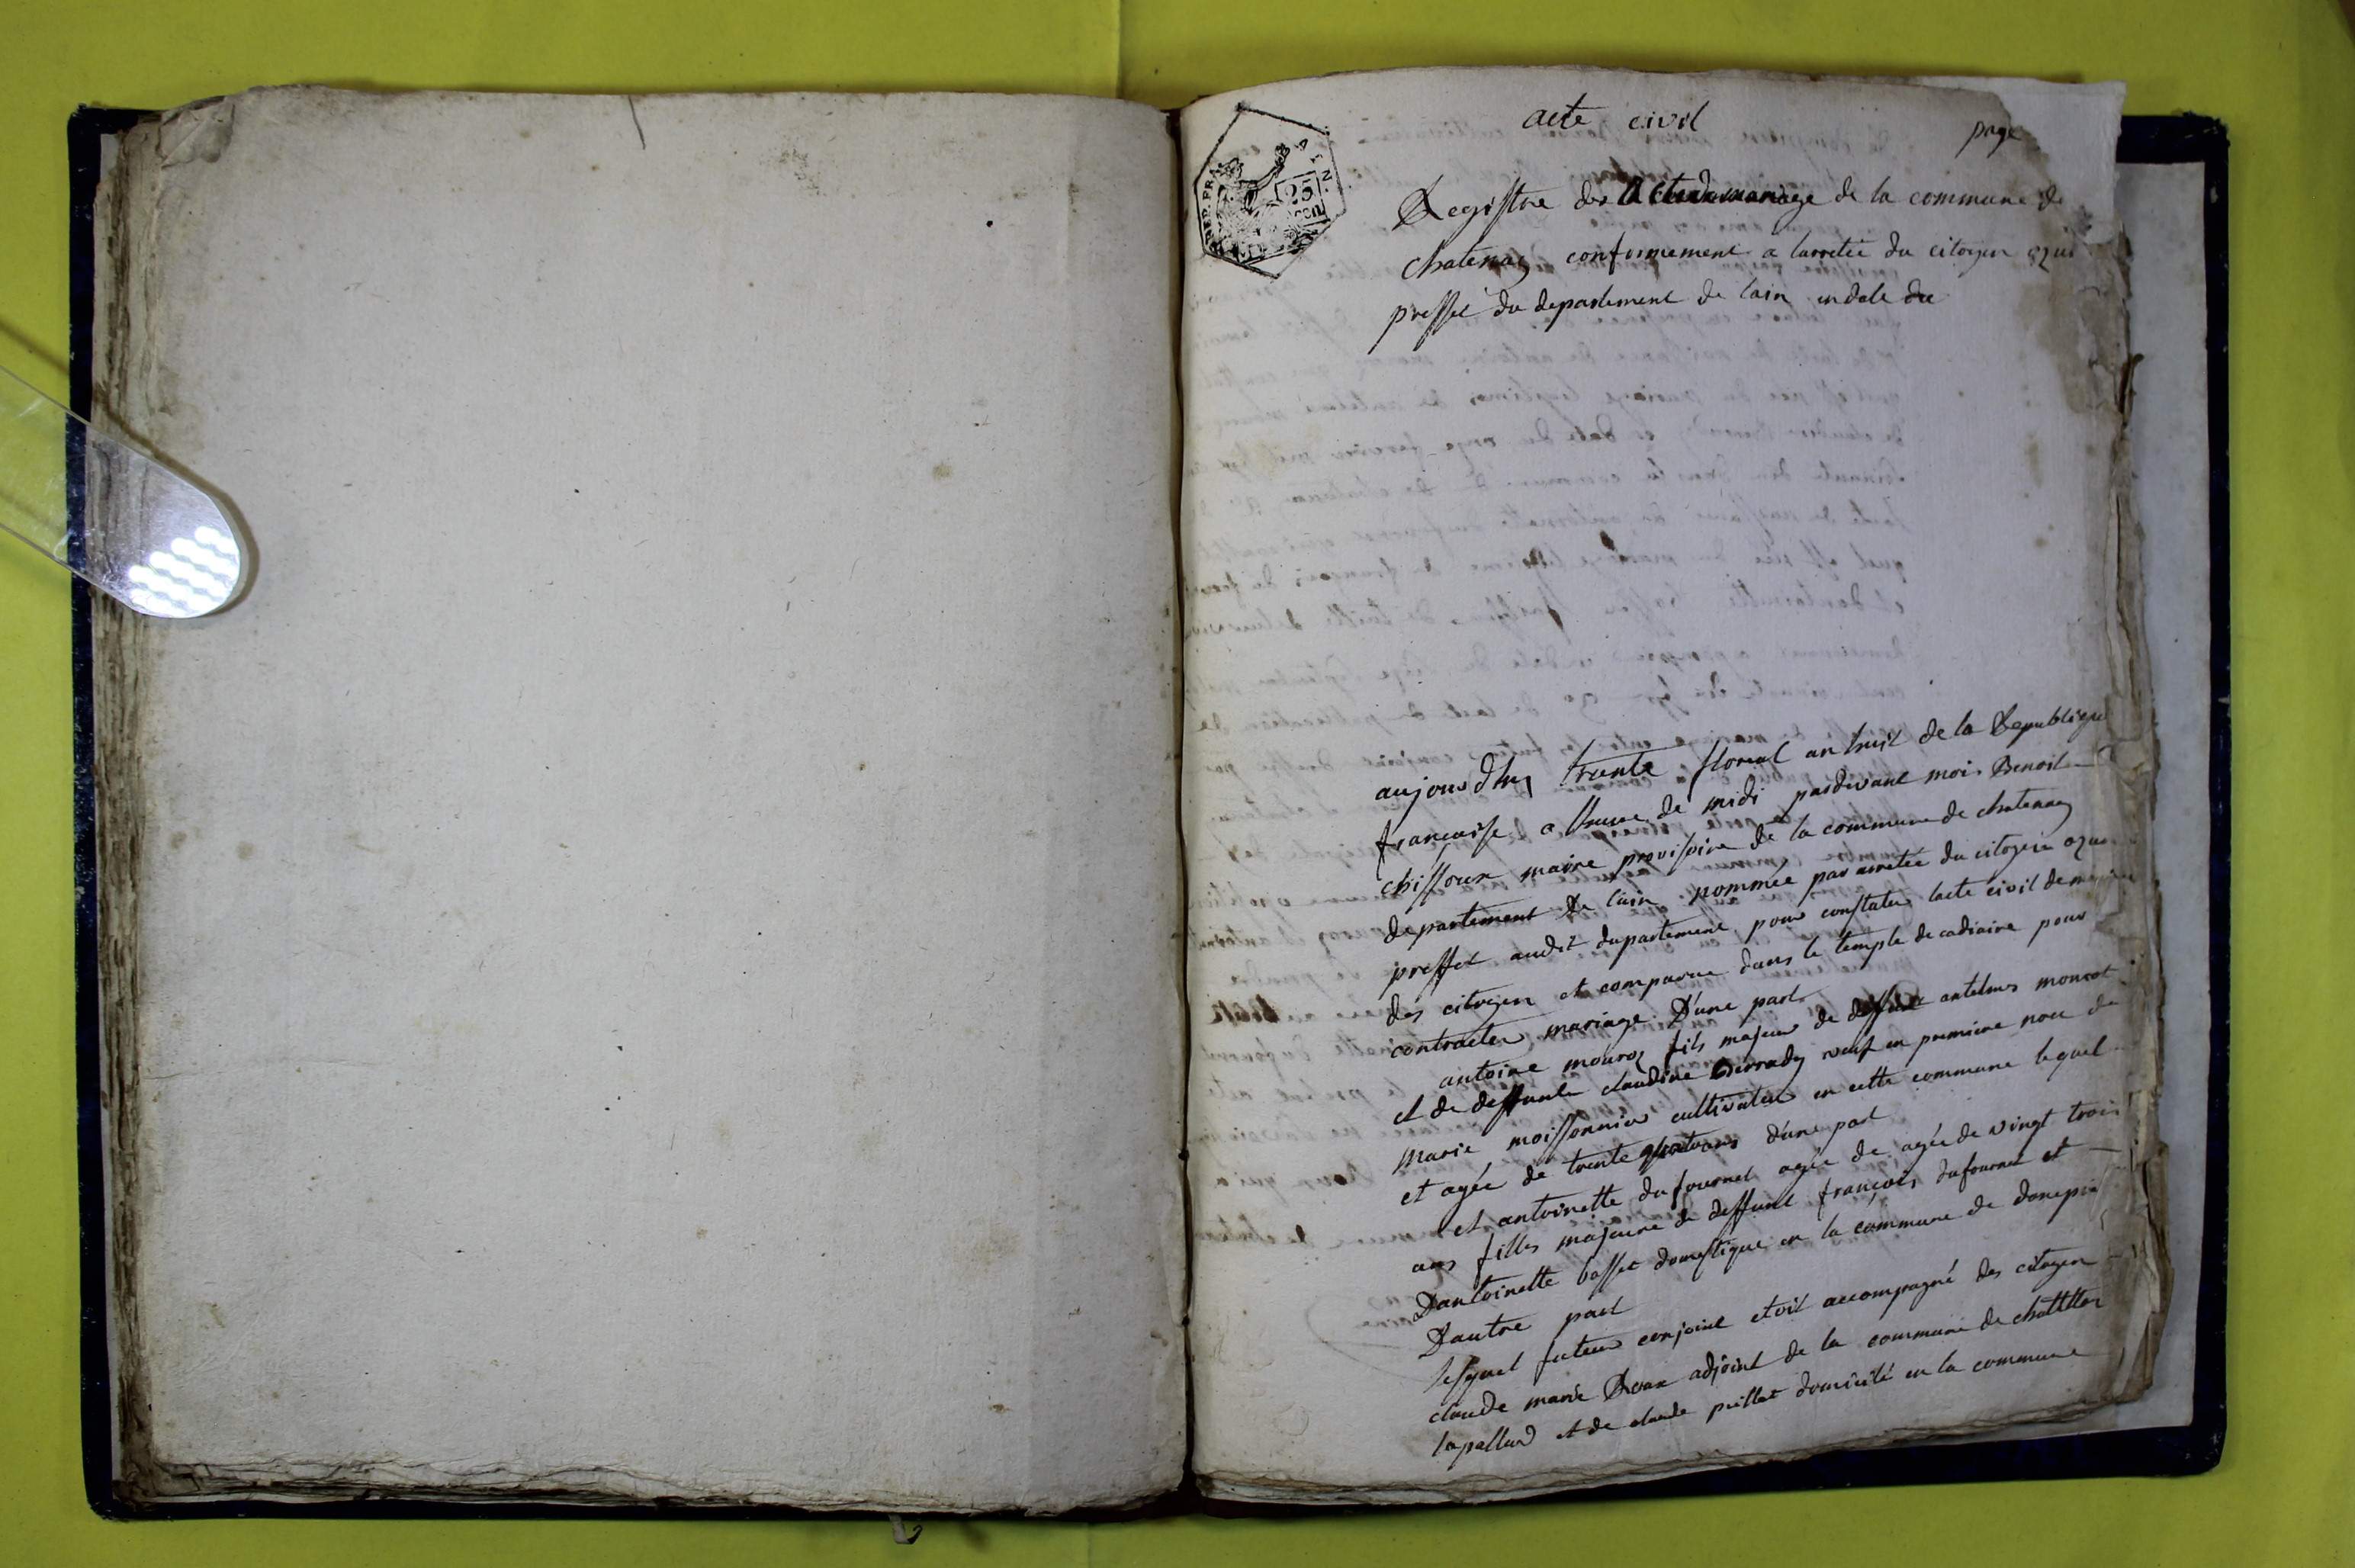 acte civil
page
REP. FRA
25
cen
Registre des acte de mariage de la commune de
chatenay conformement a larretée du citoyen ozun
preffet du departement de lain en date du
aujourdhuy trente floreal an huit de la Republique
francaisse a lheure de midi pardevant moi Benoit
chissoux maire provisoire de la commune de chatenay
departement de lain nommée par arretée du citoyen ozun
preffet audit departement pour constater lacte civil de mariage
des citoyen et comparue dans le temple decadiaire pour
contracter mariage. D'une part
antoine mouroz fils majeur de deffunt antelmes mouroz
et de deffunte claudine veuf en premiere noce de
marie moissonnier cultivateur en cette commune lequel
et agée de trente quatre ans d'une part
et antoinette dufournet agée de agée de vingt trois
ans filles majeure de deffunt françois dufournet et
Dantoinette basset domestique en la commune de dompier
Dautre part
lesquel futeur conjoint etoit accompagné des citoyen
claude marie Roux adjoint de la commune de chattillon
lapallud et de claude pillet domicilié en la commune